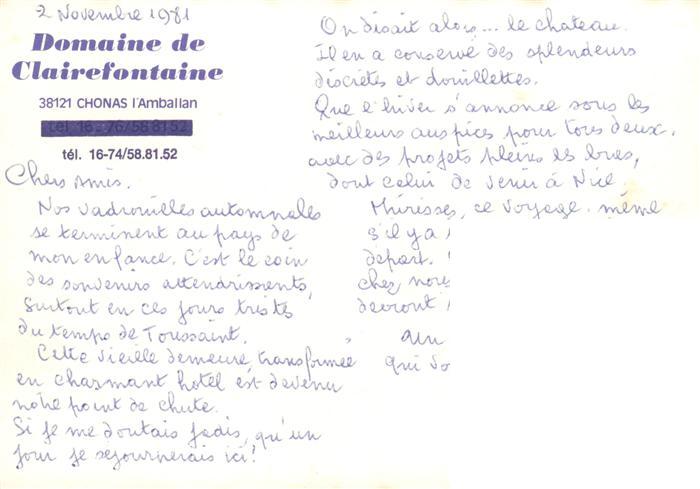 2 Novembre 1981
Domaine de
Clairefontaine
38121 CHONAS l'Amballan
tél. 16-76/58.81.52
tél. 16-74/58.81.52
Chers Amis.
Nos vadrouilles automnales
se terminent au pays de
mon enfance. C'est le coin
des souvenirs attendrissants,
surtout en ces jours tristes
du temps de Toussaint.
Cette vieille demeure transformée
en charmant hotel est devenu
notre point de chute.
Si je me doutais jadis, qu'un
jour je sejournerais ici!
On disait alors... le chateau.
Il en a conservé des splendeurs
discrètes et douillettes.
Que l'hiver s'annonce sous les
meilleurs auspices pour tous deux.
avec des projets pleins les bras,
dont celui de venir à Nice.
Mûrissez, ce voyage. même
s'il y a
départ.
chez nous
devront
qui vo